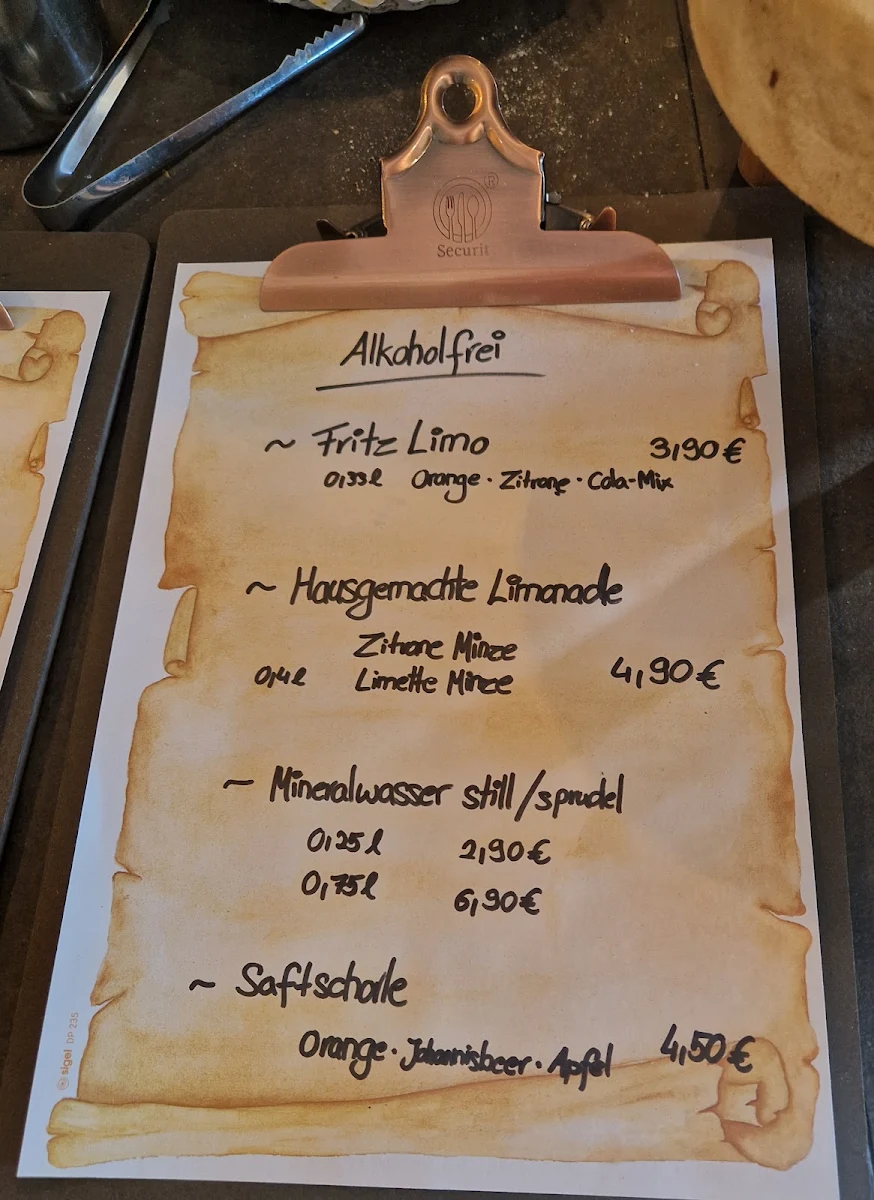 ®
Securit
Alkoholfrei
~ Fritz Limo 3,90€
0,33l Orange · Zitrone · Cola-Mix
~ Hausgemachte Limonade
Zitrone Minze
0,4l Limette Minze 4,90€
~ Mineralwasser still/sprudel
0,25l 2,90€
0,75l 6,90€
~ Saftschorle
Orange · Johannisbeer · Apfel 4,50€
sigel DP 235